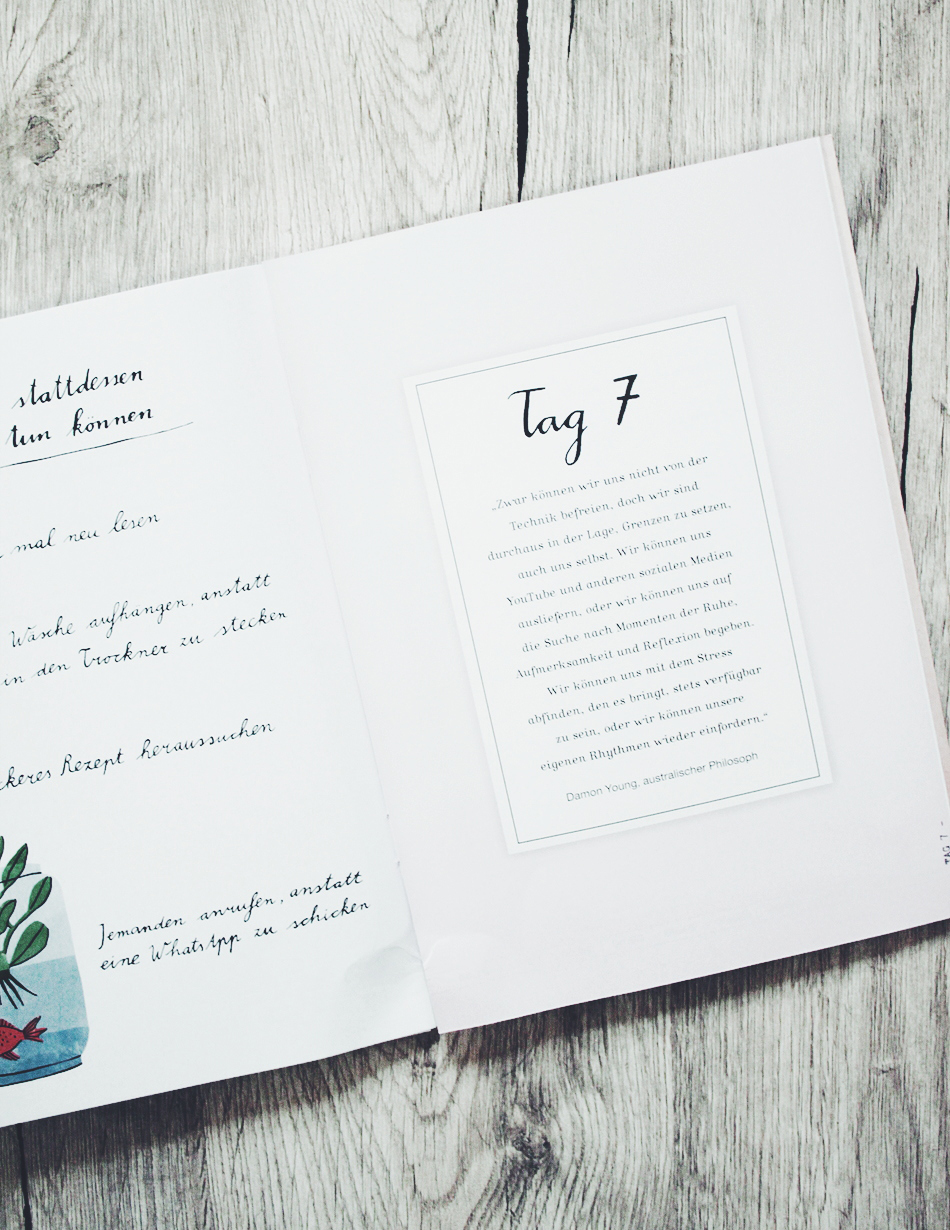 stattdessen
tun können
mal neu lesen
Wäsche aufhängen, anstatt
in den Trockner zu stecken
Rezept heraussuchen
Jemanden anrufen, anstatt
eine WhatsApp zu schicken
Tag 7
„Zwar können wir uns nicht von der
Technik befreien, doch wir sind
durchaus in der Lage, Grenzen zu setzen,
auch uns selbst. Wir können uns
YouTube und anderen sozialen Medien
ausliefern, oder wir können uns auf
die Suche nach Momenten der Ruhe,
Aufmerksamkeit und Reflexion begeben.
Wir können uns mit dem Stress
abfinden, den es bringt, stets verfügbar
zu sein, oder wir können unsere
eigenen Rhythmen wieder einfordern.“
Damon Young, australischer Philosoph
TAG 7 -